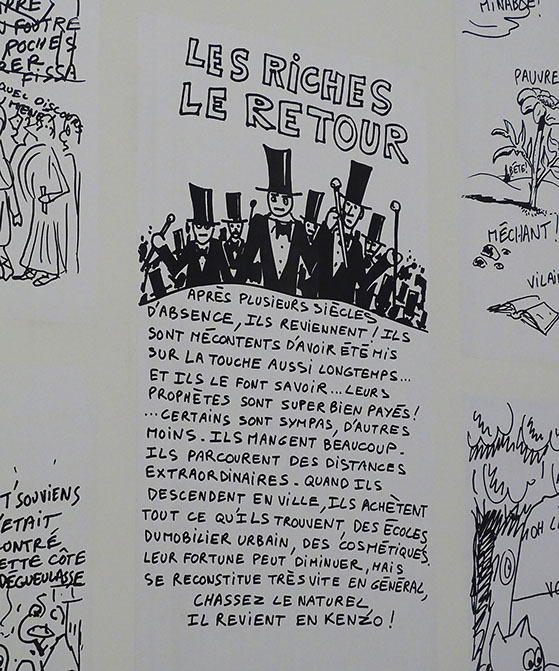 RRE /
FOUTRE
POCHES
RER
FISSA
QUEL DISCOURS
MENE?
T'SOUVIENS
'ETAIT
CONTRÉ
ETTE CÔTE
DEGUEULASSE
LES RICHES
LE RETOUR
APRÈS PLUSIEURS SIÈCLES
D'ABSENCE, ILS REVIENNENT! ILS
SONT MÉCONTENTS D'AVOIR ÉTÉ MIS
SUR LA TOUCHE AUSSI LONGTEMPS...
ET ILS LE FONT SAVOIR... LEURS
PROPHÈTES SONT SUPER BIEN PAYÉS!
...CERTAINS SONT SYMPAS, D'AUTRES
MOINS. ILS MANGENT BEAUCOUP.
ILS PARCOURENT DES DISTANCES
EXTRAORDINAIRES. QUAND ILS
DESCENDENT EN VILLE, ILS ACHÈTENT
TOUT CE QU'ILS TROUVENT, DES ÉCOLES,
DU MOBILIER URBAIN, DES COSMÉTIQUES.
LEUR FORTUNE PEUT DIMINUER, MAIS
SE RECONSTITUE TRÈS VITE EN GÉNÉRAL,
CHASSEZ LE NATUREL,
IL REVIENT EN KENZO!
MINABLE!
PAUVRE
BÊTE!
MÉCHANT!
VILAIN
OH L